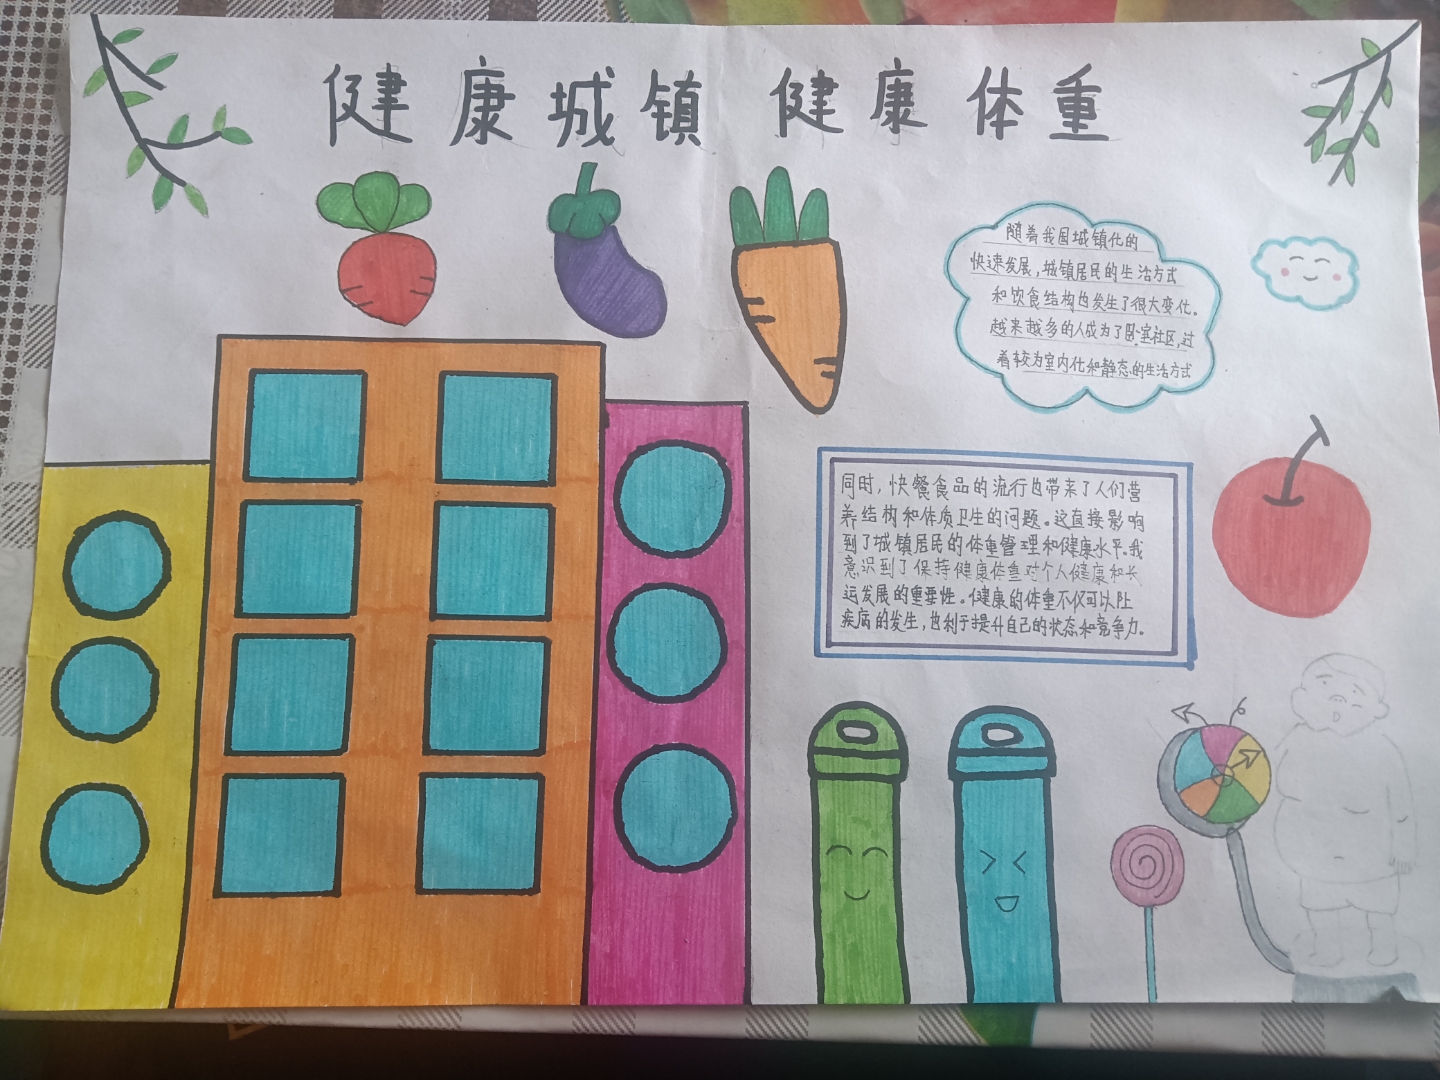 健康城镇 健康体重
随着我国城镇化的
快速发展,城镇居民的生活方式
和饮食结构也发生了很大变化。
越来越多的人成为了卧室社区,过
着较为室内化和静态的生活方式
同时,快餐食品的流行也带来了人们营
养结构和体质卫生的问题。这直接影响
到了城镇居民的体重管理和健康水平。我
意识到了保持健康体重对个人健康和长
远发展的重要性。健康的体重不仅可以阻
疾病的发生,也利于提升自己的状态和竞争力。